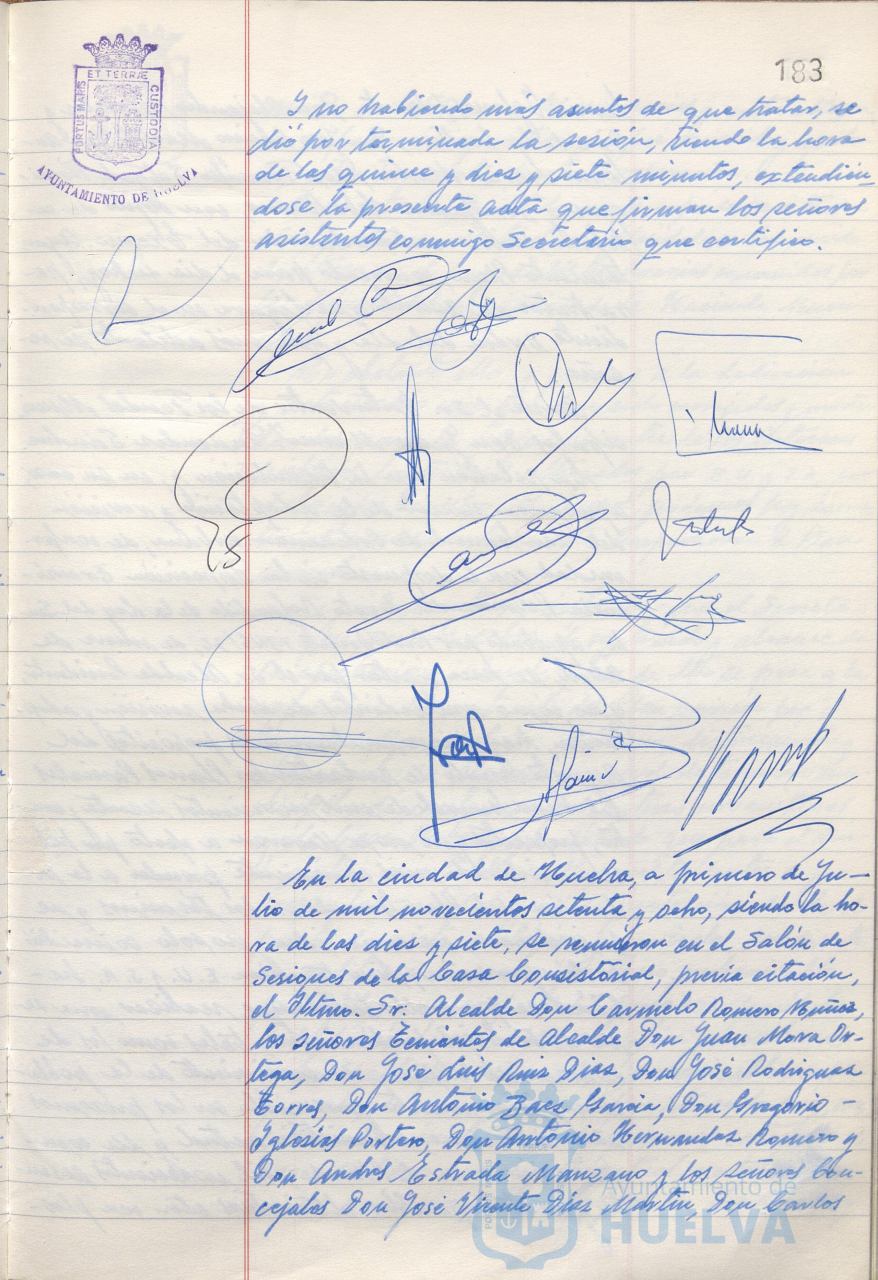 183
PORTUS MARIS
ET TERRÆ
CUSTODIA
AYUNTAMIENTO DE HUELVA
Y no habiendo más asuntos de que tratar, se
dió por terminada la sesión, siendo la hora
de las quince y diez y siete minutos, extendién-
dose la presente acta que firman los señores
asistentes conmigo Secretario que certifico.
En la ciudad de Huelva, a primero de Ju-
lio de mil novecientos setenta y ocho, siendo la ho-
ra de las diez y siete, se reunieron en el Salón de
Sesiones de la Casa Consistorial, previa citación,
el Iltmo. Sr. Alcalde Don Carmelo Romero Muñoz,
los señores Tenientes de Alcalde Don Juan Mora Or-
tega, Don José Luis Ruiz Diaz, Don José Rodriguez
Torres, Don Antonio Baez Garcia, Don Gregorio -
Iglesias Portero, Don Antonio Hernandez Romero y
Don Andres Estrada Manzano y los señores Con-
cejales Don José Vicente Díaz Martín, Don Carlos
Ayuntamiento de
HUELVA